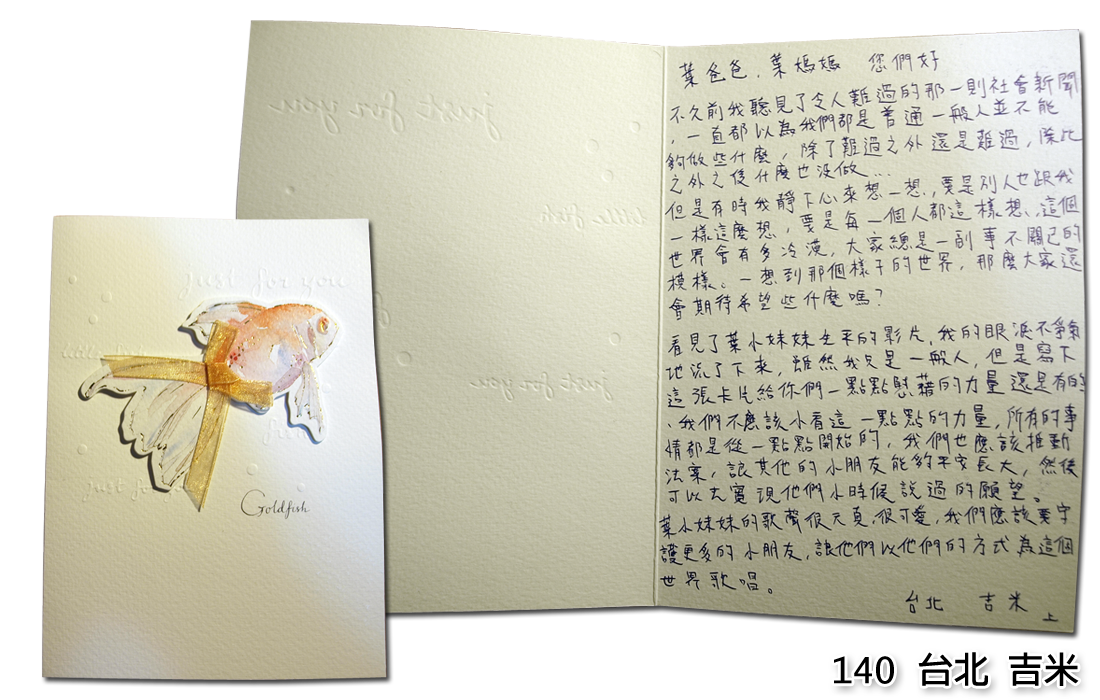 just for you
Goldfish
just for you
little fish
just for you
葉爸爸、葉媽媽 您們好
不久前我聽見了令人難過的那一則社會新聞
,一直都以為我們都是普通一般人並不能
夠做些什麼,除了難過之外還是難過,除此
之外之後什麼也沒做...
但是有時我靜下心來想一想,要是別人也跟我
一樣這麼想,要是每一個人都這樣想,這個
世界會有多冷漠,大家總是一副事不關己的
模樣、一想到那個樣子的世界,那麼大家還
會期待希望些什麼嗎?
看見了葉小妹妹生平的影片,我的眼淚不爭氣
地流了下來,雖然我只是一般人,但是寫下
這張卡片給你們一點點慰藉的力量還是有的
、我們不應該小看這一點點的力量,所有的事
情都是從一點點開始的,我們也應該推動
法案,讓其他的小朋友能夠平安長大,然後
可以去實現他們小時候說過的願望。
葉小妹妹的歌聲很天真,很可愛,我們應該要守
護更多的小朋友,讓他們以他們的方式為這個
世界歌唱。
台北 吉米 上
140 台北 吉米